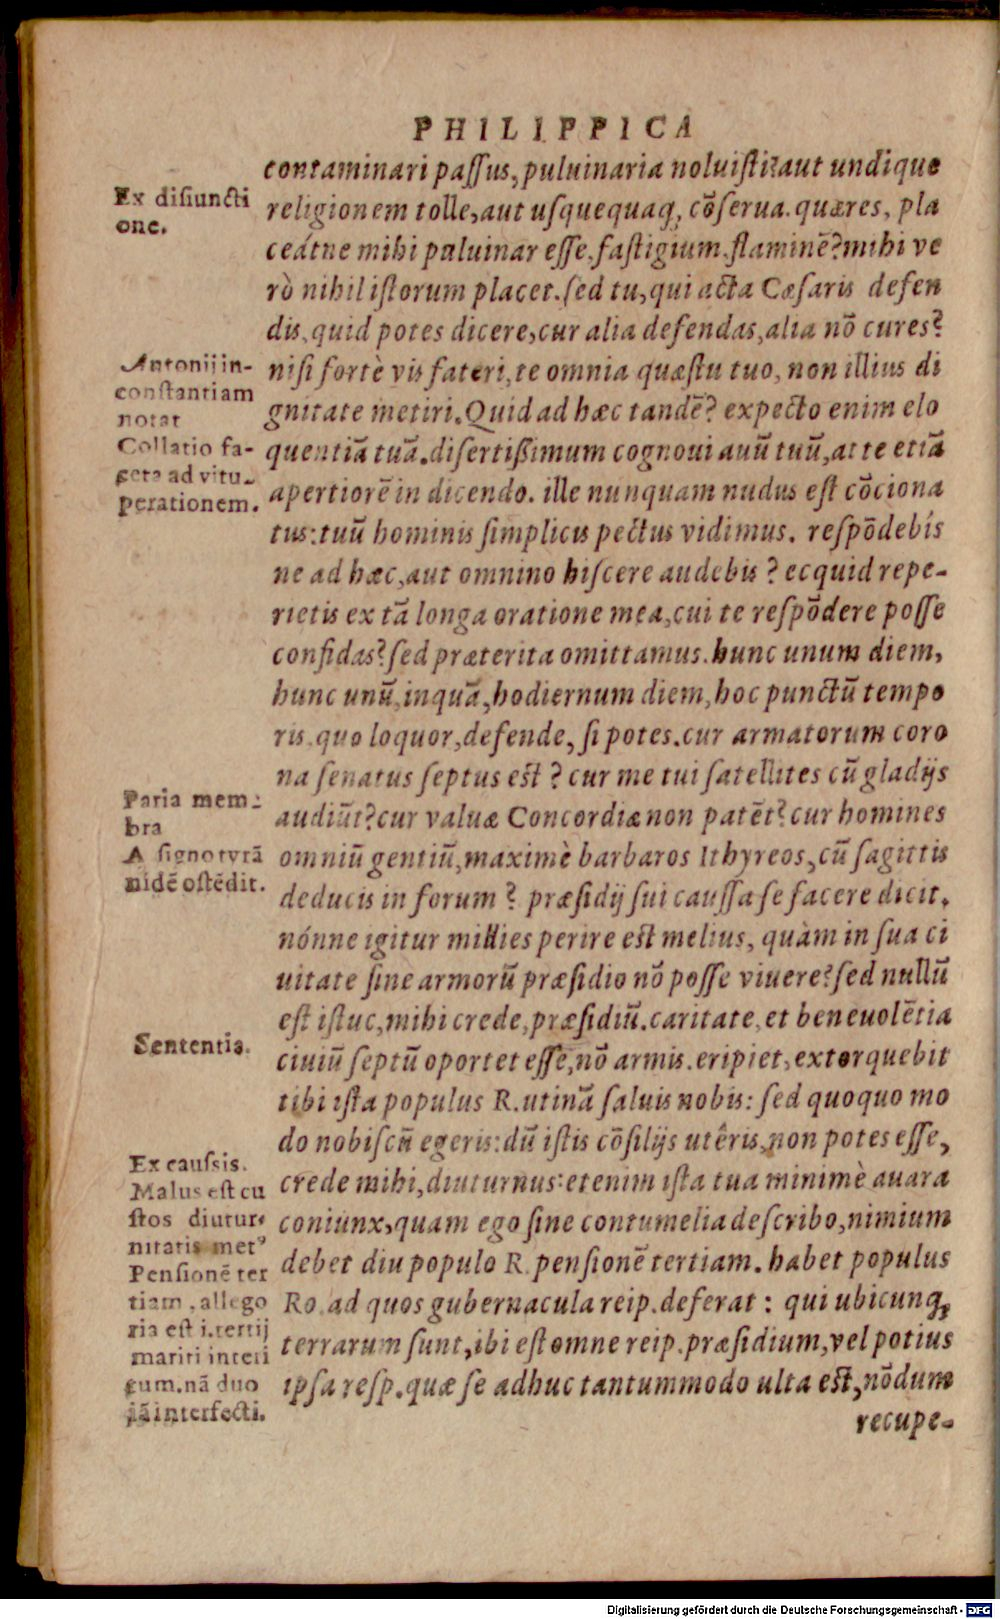 PHILIPPICA
contaminari paſſus, puluinaria noluiſti? aut undique
religionem tolle, aut uſquequaq; cõſerua. quæres, pla
ceátne mihi puluinar eſſe, faſtigium, flaminẽ? mihi ve
rò nihil iſtorum placet. ſed tu, qui acta Cæſaris defen
dis, quid potes dicere, cur alia defendas, alia nõ cures?
niſi fortè vis fateri, te omnia quæſtu tuo, non illius di
gnitate metiri. Quid ad hæc tandẽ? expecto enim elo
quentiã tuã. diſertißimum cognoui auũ tuũ, at te etiã
apertiorẽ in dicendo. ille nunquam nudus eſt cõciona
tus: tuũ hominis ſimplicis pectus vidimus. reſpõdebíſ
ne ad hæc, aut omnino hiſcere audebis? ecquid repe-
rietis ex tã longa oratione mea, cui te reſpõdere poſſe
confidas? ſed præterita omittamus. hunc unum diem,
hunc unũ, inquã, hodiernum diem, hoc punctũ tempo
ris, quo loquor, defende, ſi potes. cur armatorum coro
na ſenatus ſeptus eſt? cur me tui ſatellites cũ gladijs
audiũt? cur valuæ Concordiæ non patẽt? cur homines
omniũ gentiũ, maximè barbaros Ithyreos, cũ ſagittis
deducis in forum? præſidij ſui cauſſa ſe facere dicit.
nónne igitur millies perire eſt melius, quàm in ſua ci
uitate ſine armorũ præſidio nõ poſſe viuere? ſed nullũ
eſt iſtuc, mihi crede, præſidiũ. caritate, et beneuolẽtia
ciuiũ ſeptũ oportet eſſe, nõ armis. eripiet, extorquebit
tibi iſta populus R. utinã ſaluis nobis: ſed quoquo mo
do nobiſcũ egeris: dũ iſtis cõſilijs utêris, non potes eſſe,
crede mihi, diuturnus: etenim iſta tua minimè auara
coniunx, quam ego ſine contumelia deſcribo, nimium
debet diu populo R. penſionẽ tertiam. habet populus
Ro. ad quos gubernacula reip. deferat: qui ubicunq;
terrarum ſunt, ibi eſt omne reip. præſidium, vel potius
ipſa reſp. quæ ſe adhuc tantummodo ulta eſt, nõdum
recupe-
Ex diſiuncti
one.
Antonij in-
conſtantiam
notat
Collatio fa-
ceta ad vitu-
perationem.
Paria mem-
bra
A ſigno tyrã
nidẽ oſtẽdit.
Sententia.
Ex cauſsis.
Malus eſt cu
ſtos diutur-
nitatis metꝰ
Penſionẽ ter
tiam, allego
ria eſt i. tertij
mariti interi
tum. nã duo
iã interfecti.
Digitalisierung gefördert durch die Deutsche Forschungsgemeinschaft - DFG